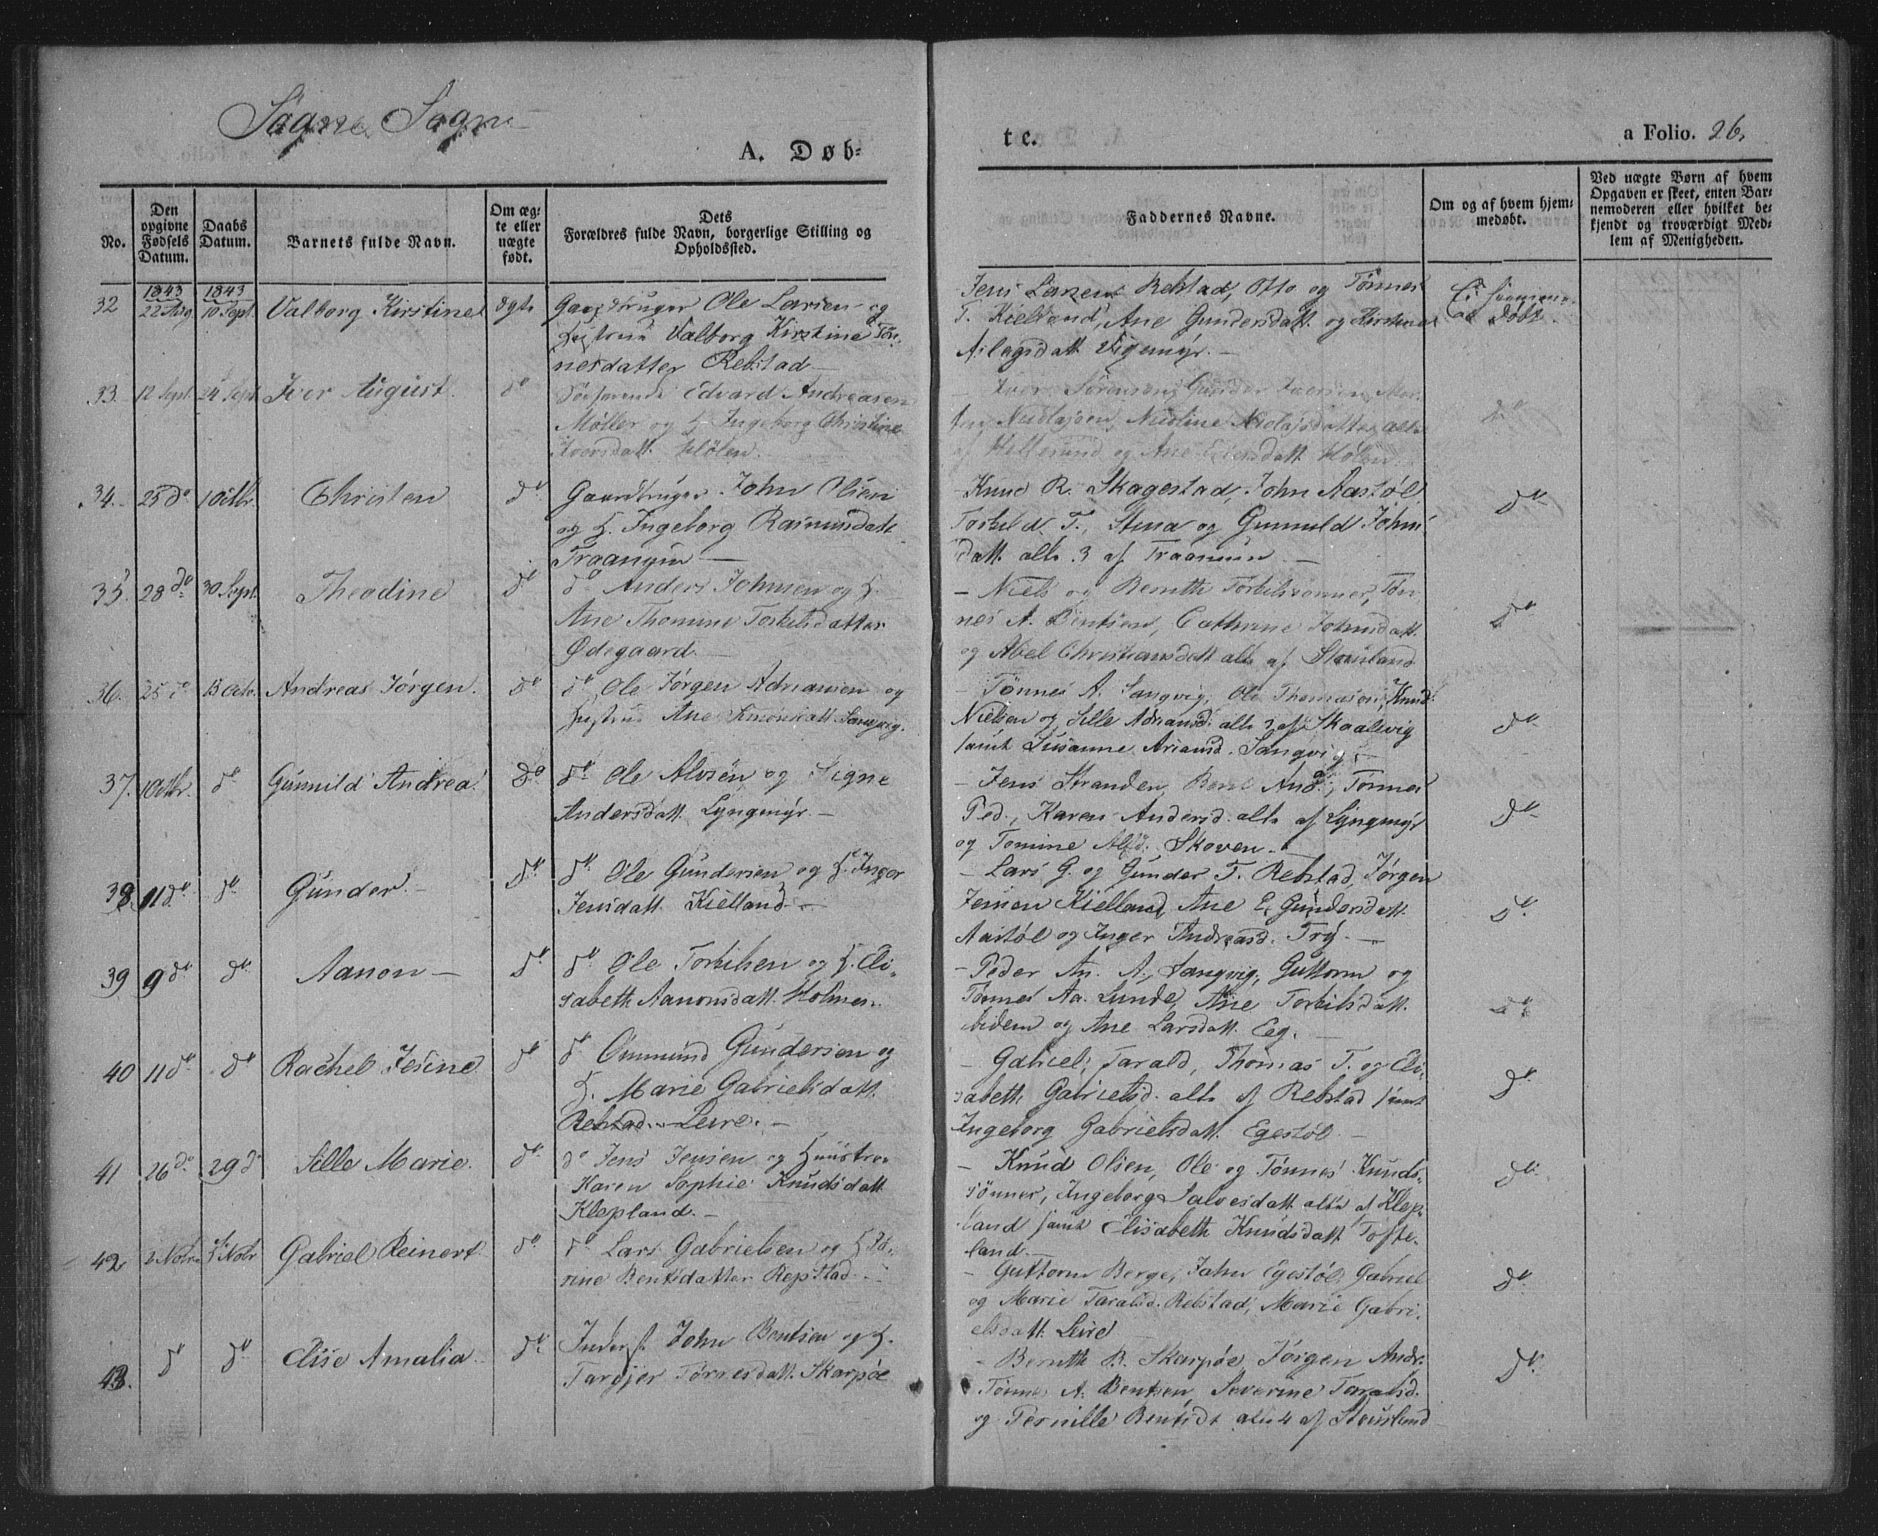 Søgne Sogn
A. Døb-
te.
a Folio. 26.
No.
Den opgivne Fødsels Datum.
Daabs Datum.
Barnets fulde Navn.
Om ægte eller uægte født.
Dets
Forældres fulde Navn, borgerlige Stilling og
Opholdssted.
Faddernes Navne.
Om og af hvem hjem-
medøbt.
Ved uægte Børn af hvem
Opgaven er skeet, enten Bar-
nemoderen eller hvilket be-
kjendt og troværdigt Med-
lem af Menigheden.
1843 1843
32 22 Aug 10 Sept. Valborg Kirstine ægte Gaardbruger Ole Larsen og
Hustrue Valborg Kirstine Tøn-
nesdatter Rebstad —
Jens Larsen Rebstad, Otto og Tønnes
T. Kielland, Ane Gundersdatt og Kirstine
Aslagsdatt Vigemÿr. —
Ei hjemme-
døbt.
33. 12 Sept. 24 Sept. Iver August do Søefarende Edvard Andreasen
Møller og H. Ingeborg Christine
Iversdatt. Hølen.
Iver Sørensen, Gunder Iversen, Mor-
ten Nicolajsen, Nicoline Nicolajsdatter alle
af Hellesund og Ane Eilersdatt Hølen
do
34. 25 do 1 Octbr. Christen do Gaardbruger John Olsen
og H. Ingeborg Rasmusdatt
Traangrun —
Knud R. Skagestad, John Aastøl
Torkild T., Stina og Gunnild Johns-
datt. alle 3 af Traanrun —
do
35. 28 do 30 Sept. Theodine do do Anders Johnsen og H.
Ane Thomine Torkilsdatter
Ødegaard. —
— Niels og Bernth Torkilssønner, Tøn-
nes A. Bentsen, Cathrine Johnsdatt.
og Abel Christiansdatt alle af Stausland
do
36. 25 do 13 Octr. Andreas Jørgen. do do Ole Jørgen Adriansen og
Hustrue Ane Simonsdatt Sangvig.
— Tønnes A. Sangvig, Ole Thomasen, Knud
Nielsen og Sille Adriansd. alle 3 af Skaalevig
samt Susanne Ariansd. Sangvig. —
do
37. 1 Octbr. do Gunnild Andrea. do do Ole Alvsen og Signe
Andersdatt. Lÿngmÿr. —
— Jens Stranden, Bernt And., Tønnes
Ped., Karen Andersd. alle af Lÿngmÿr
og Tomine Alfsd. Skoven. —
do
38. 11 do do Gunder. — do do Ole Gundersen og H. Inger
Jensdatt. Kielland. —
— Lars G. og Gunder T. Rebstad, Jørgen
Jensen Kielland, Ane E. Gundersdatt.
Aastøl og Inger Andreasd. Trÿ. —
do
39 9 do do Aanon — do do Ole Torkilsen og H. Eli-
sabeth Aanonsdatt. Holmen.
— Peder An. A. Sangvig, Guttorm og
Tønnes Aa. Lunde, Ane Torkilsdatt.
ibidem og Ane Larsdatt. Eeg. —
do
40 11 do do Rachel Jesine do do Ommund Gundersen og
H. Marie Gabrielsdatt.
Rebstad. Leire. —
— Gabriel, Tarald, Thomas T. og Eli-
sabeth Gabrielsd. alle af Rebstad samt
Ingeborg Gabrielsdatt. Egestøl —
do
41 26 do 29 do Sille Marie. do do Jens Jensen og Huustrue
Karen Sophie Knudsdatt.
Klepland. —
— Knud Olsen, Ole og Tønnes Knuds-
sønner, Ingeborg Salvesdatt alle af Klep-
land samt Elisabeth Knudsdatt Tofte-
land. —
do
42 Novbr Novbr Gabriel Reinert do do Lars Gabrielsen og H.
Bentsdatter Repstad
— Guttorm Berge, John Egestøl, Gabriel
og Marie Taralsd. Rebstad, Marie Gabri-
elsdatt. Leire
do
43. do do Elise Amalia do Inderst John Bentsen og H.
Targjer Tørresdatt. Skarpøe
— Bernth B. Skarpøe, Jørgen Andr.
Tønnes A. Bentsen, Severine Taralsd.
og Pernille Bentsdt alle 4 af Stausland
do